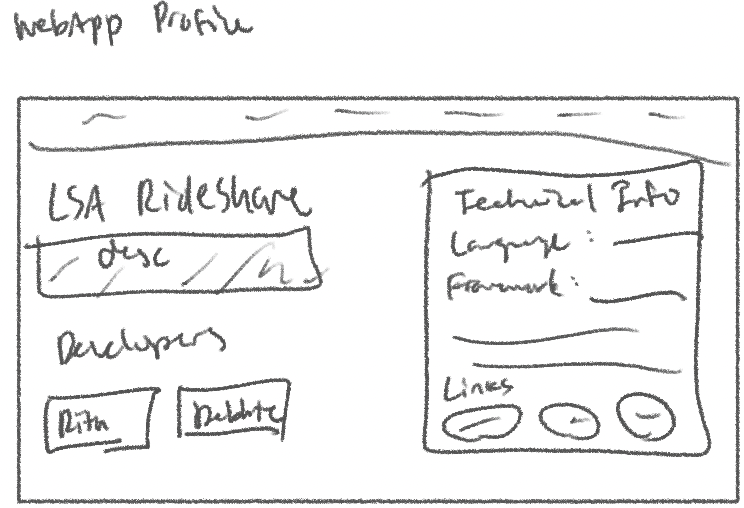 WebApp Profile
LSA Rideshare
desc
Developers
Ritu
Technical Info
Language :
Framework :
Links